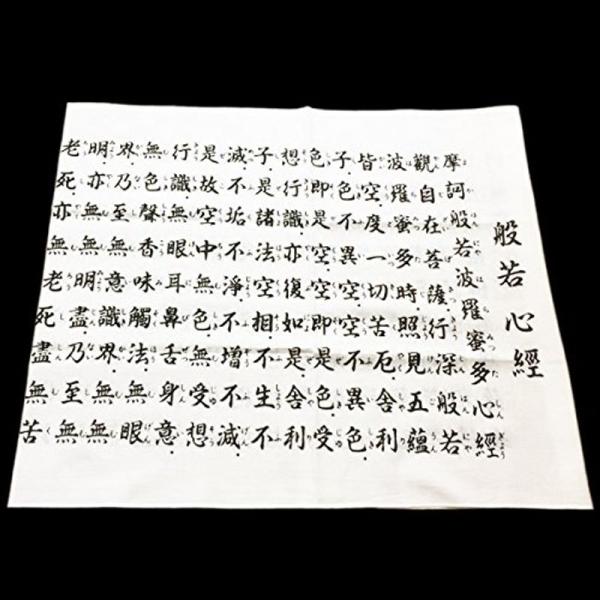 般若心經
摩訶般若波羅蜜多心經
觀自在菩薩行深般若
波羅蜜多時照見五蘊
皆空度一切苦厄舍利
子色不異空空不異色
色即是空空即是色受
想行識亦復如是舍利
子是諸法空相不生不
滅不垢不淨不增不減
是故空中無色無受想
行識無眼耳鼻舌身意
無色聲香味觸法無眼
界乃至無意識界無無
明亦無無明盡乃至無
老死亦無老死盡無苦